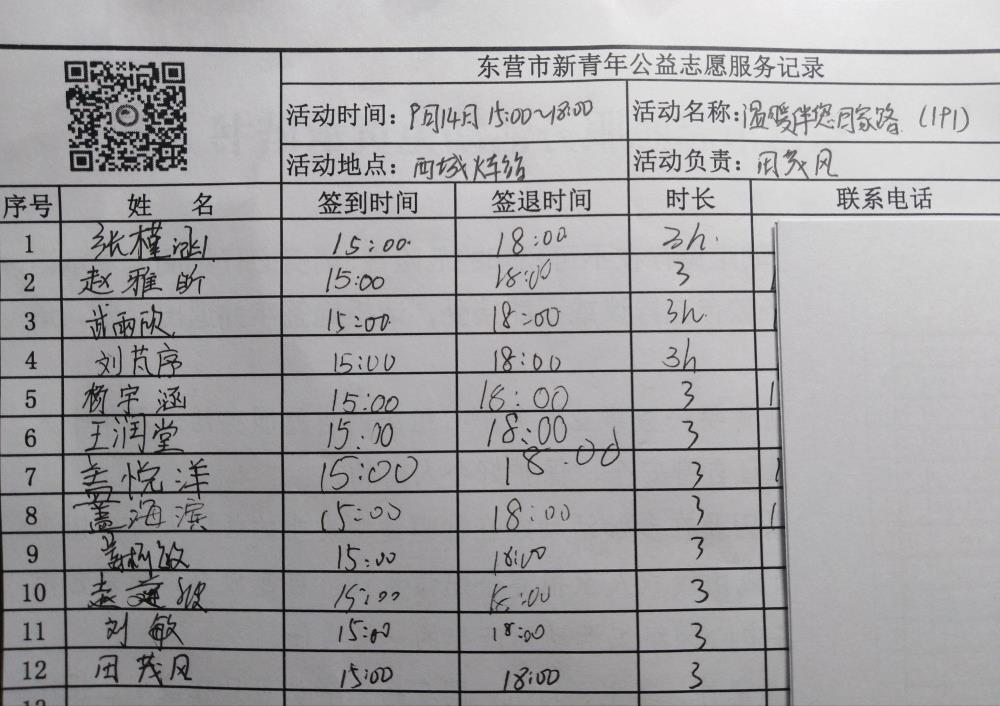 东营市新青年公益志愿服务记录
活动时间：9月14日 15:00~18:00 活动名称：温暖伴您回家路（191）
活动地点：西城火车站 活动负责：田茂风
序号 姓名 签到时间 签退时间 时长 联系电话
1 张槿涵 15:00 18:00 3h
2 赵雅昕 15:00 18:00 3
3 武雨欣 15:00 18:00 3h
4 刘芃序 15:00 18:00 3h
5 杨宇涵 15:00 18:00 3
6 王润堂 15:00 18:00 3
7 盖悦洋 15:00 18:00 3
8 盖海滨 15:00 18:00 3
9 15:00 18:00 3
10 15:00 18:00 3
11 刘敏 15:00 18:00 3
12 田茂风 15:00 18:00 3